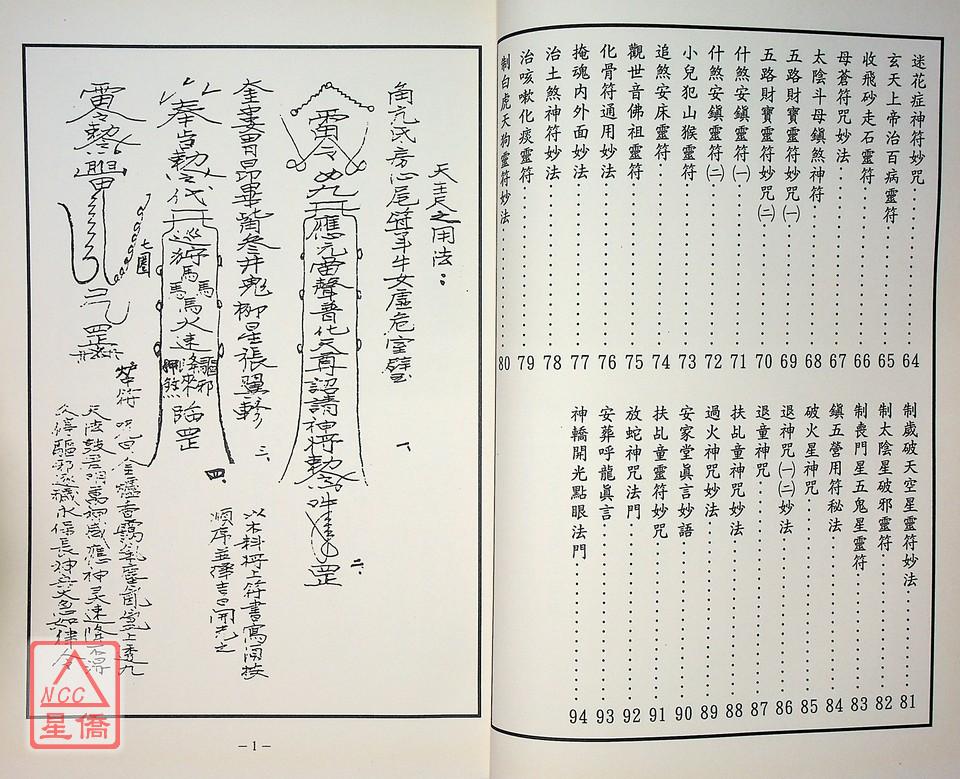 迷花症神符妙咒 64
玄天上帝治百病靈符 65
收飛砂走石靈符 66
母蒼符咒妙法 67
太陰斗母鎮煞神符 68
五路財寶靈符妙咒㈠ 69
五路財寶靈符妙咒㈡ 70
什煞安鎮靈符㈠ 71
什煞安鎮靈符㈡ 72
小兒犯山猴靈符 73
追煞安床靈符 74
觀世音佛祖靈符 75
化骨符通用妙法 76
掩魂內外面妙法 77
治土煞神符妙法 78
治咳嗽化痰靈符 79
制白虎天狗靈符妙法 80
制歲破天空星靈符妙法 81
制太陰星破邪靈符 82
制喪門星五鬼星靈符 83
鎮五營用符秘法 84
破火星神咒 85
退神咒㈠㈡妙法 86
退童神咒 87
扶乩童神咒妙法 88
過火神咒妙法 89
安家堂眞言妙語 90
扶乩童靈符妙咒 91
放蛇神咒法門 92
安葬呼龍眞言 93
神轎開光點眼法門 94
天王尺之用法：
角亢氐房心尾箕斗牛女虛危室壁 一、
雷令 九天應元雷聲普化天尊詔請神將勅令 罡 二、
奎婁胃昴畢觜參井鬼柳星張翼軫 三、
奉旨勅令代天巡狩馬馬馬馬火速降來驅邪押煞 罡 四、
以木料將上符書寫間按
順序並擇吉日開光之
七圈
罡
符
－1－
NCC
星僑